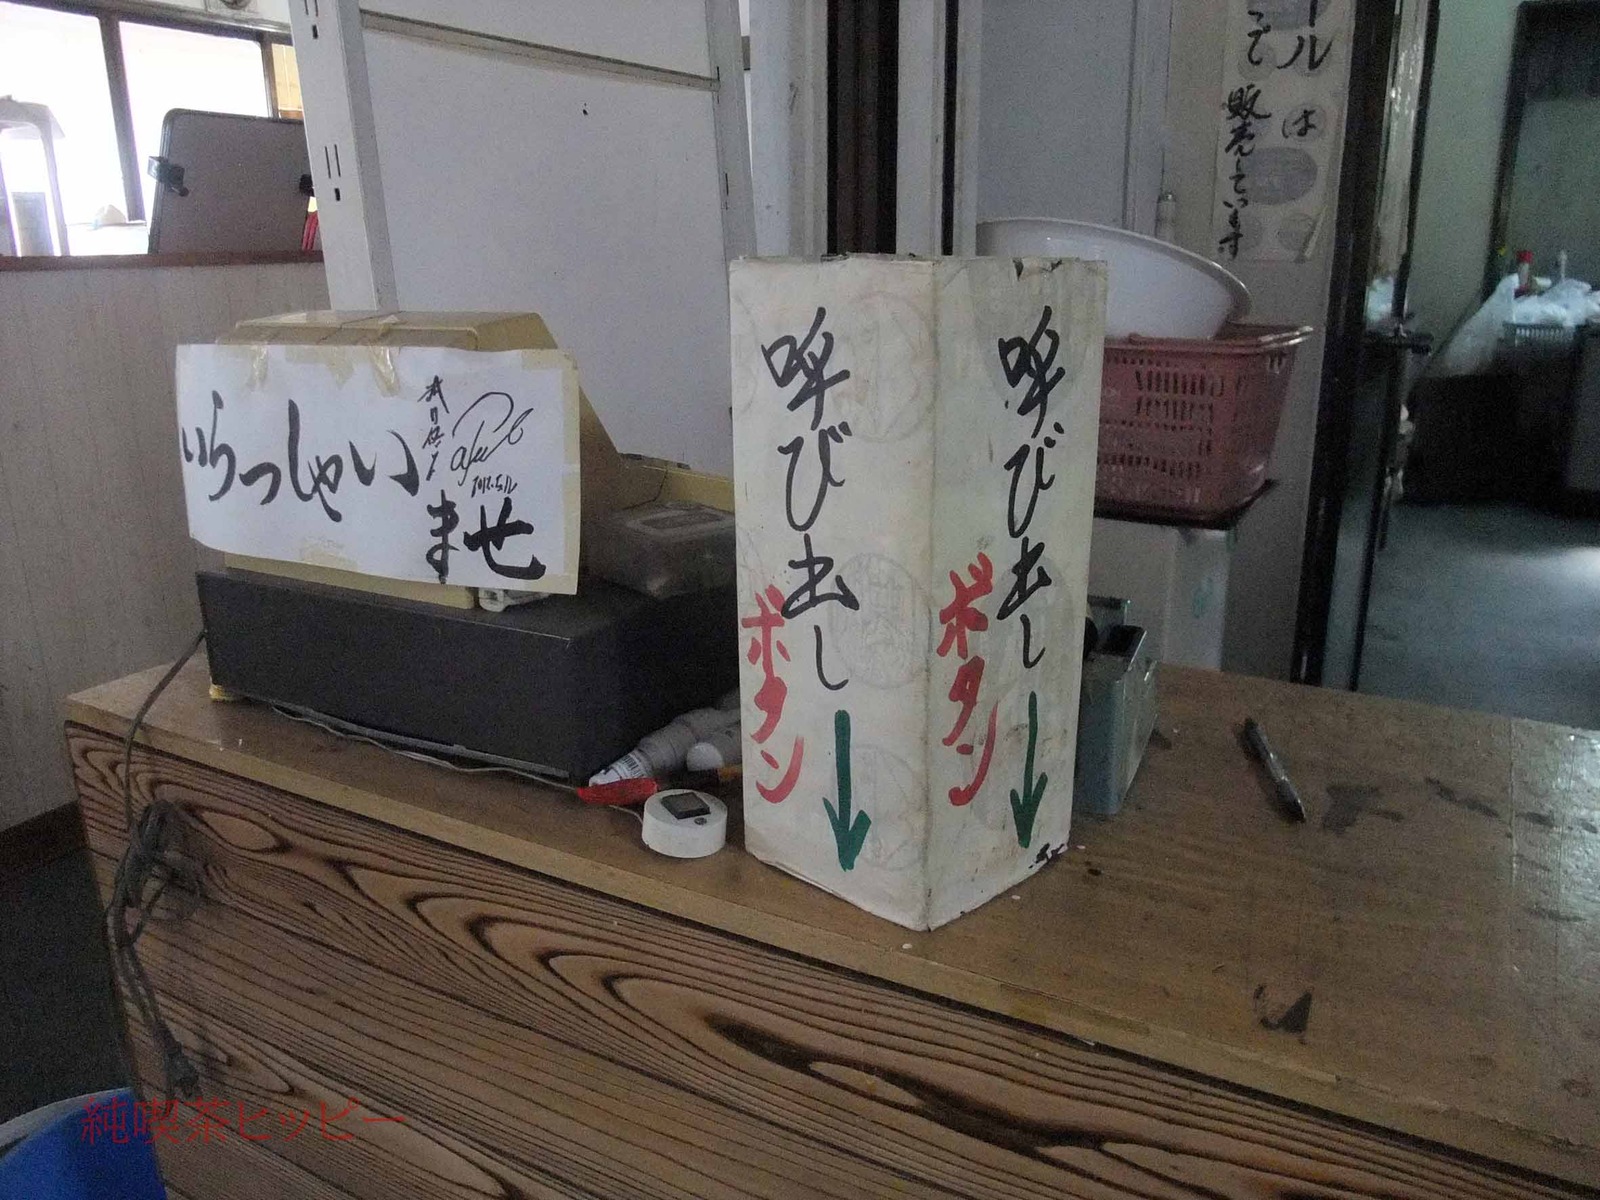 いらっしゃい
ませ
呼び出し
ボタン
呼び出し
ボタン
ール は
って 販売しています
純喫茶ヒッピー